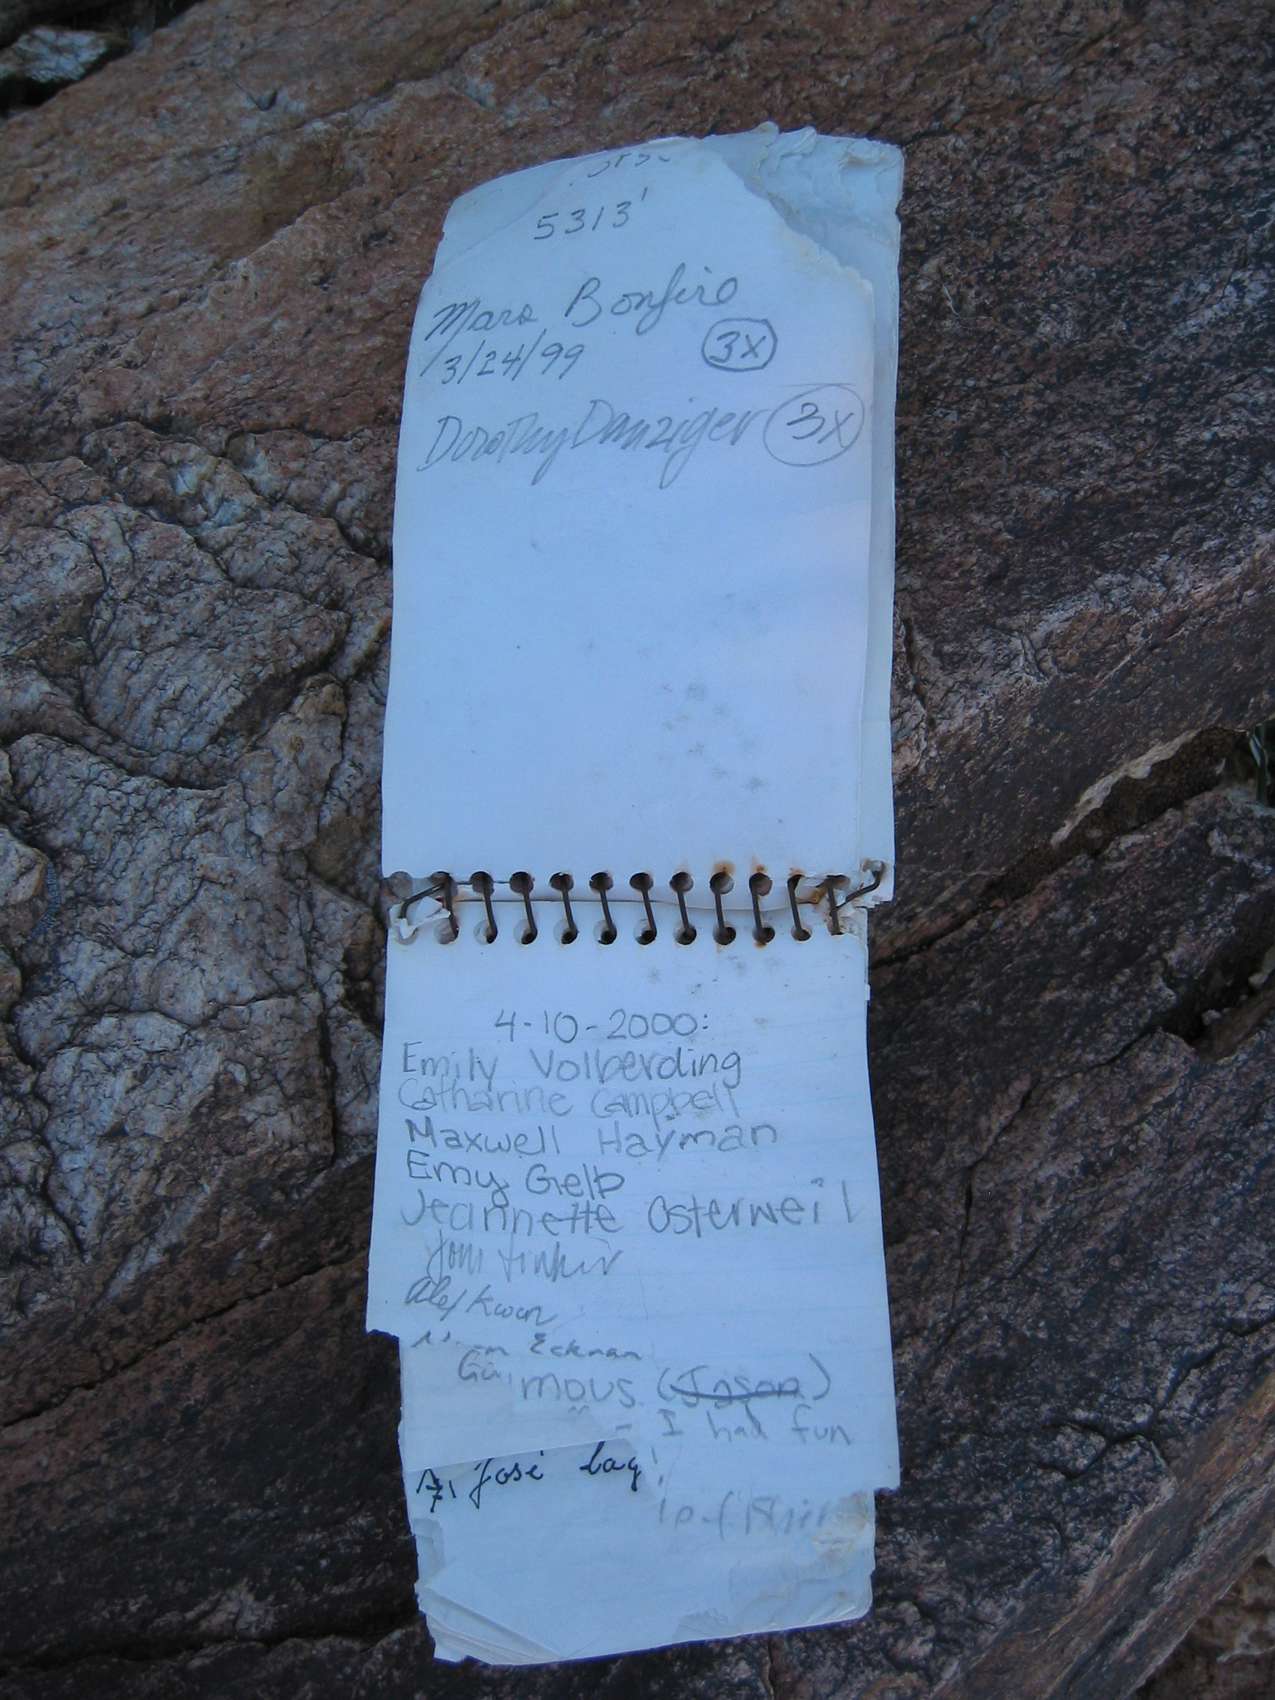 5313'
Mara Bonfire
3/24/99 3X
Dorothy Danziger 3X
4-10-2000:
Emily Volberding
Catharine Campbell
Maxwell Hayman
Emy Gelb
Jeannette Osterweil
Tom
Alex Kwon
Eckman
mous (Jason)
- I had fun
José